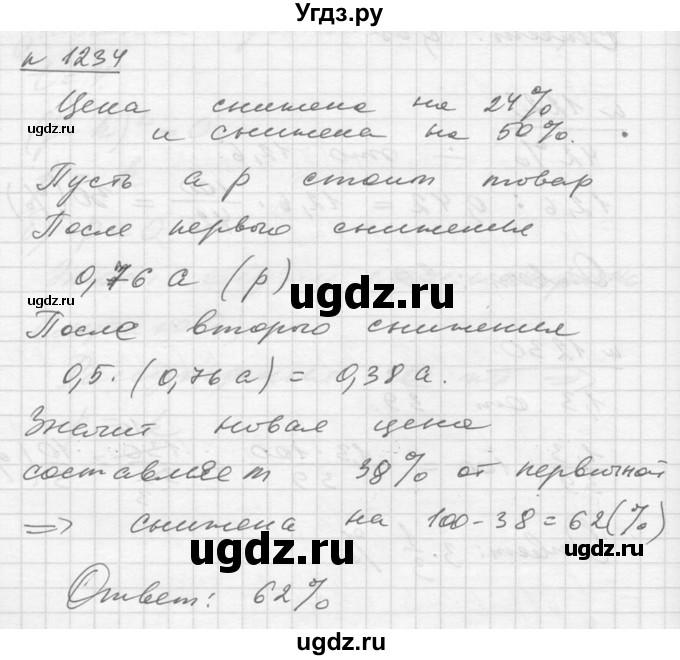 Угдз.ру
n 1234
Цена снижена на 24%
и снижена на 50%.
ugdz.ru
ugdz.ru
Пусть а р стоит товар
После первого снижения
0,76 а (р)
ugdz.ru
ugdz.ru
ugdz.ru
После второго снижения
0,5. (0,76 а) = 0,38 а.
Значит новая цена
составляет 38% от первичной
=> снижена на 100-38=62(%)
ugdz.ru
ugdz.ru
ugdz.ru
Ответ: 62%
ugdz.ru